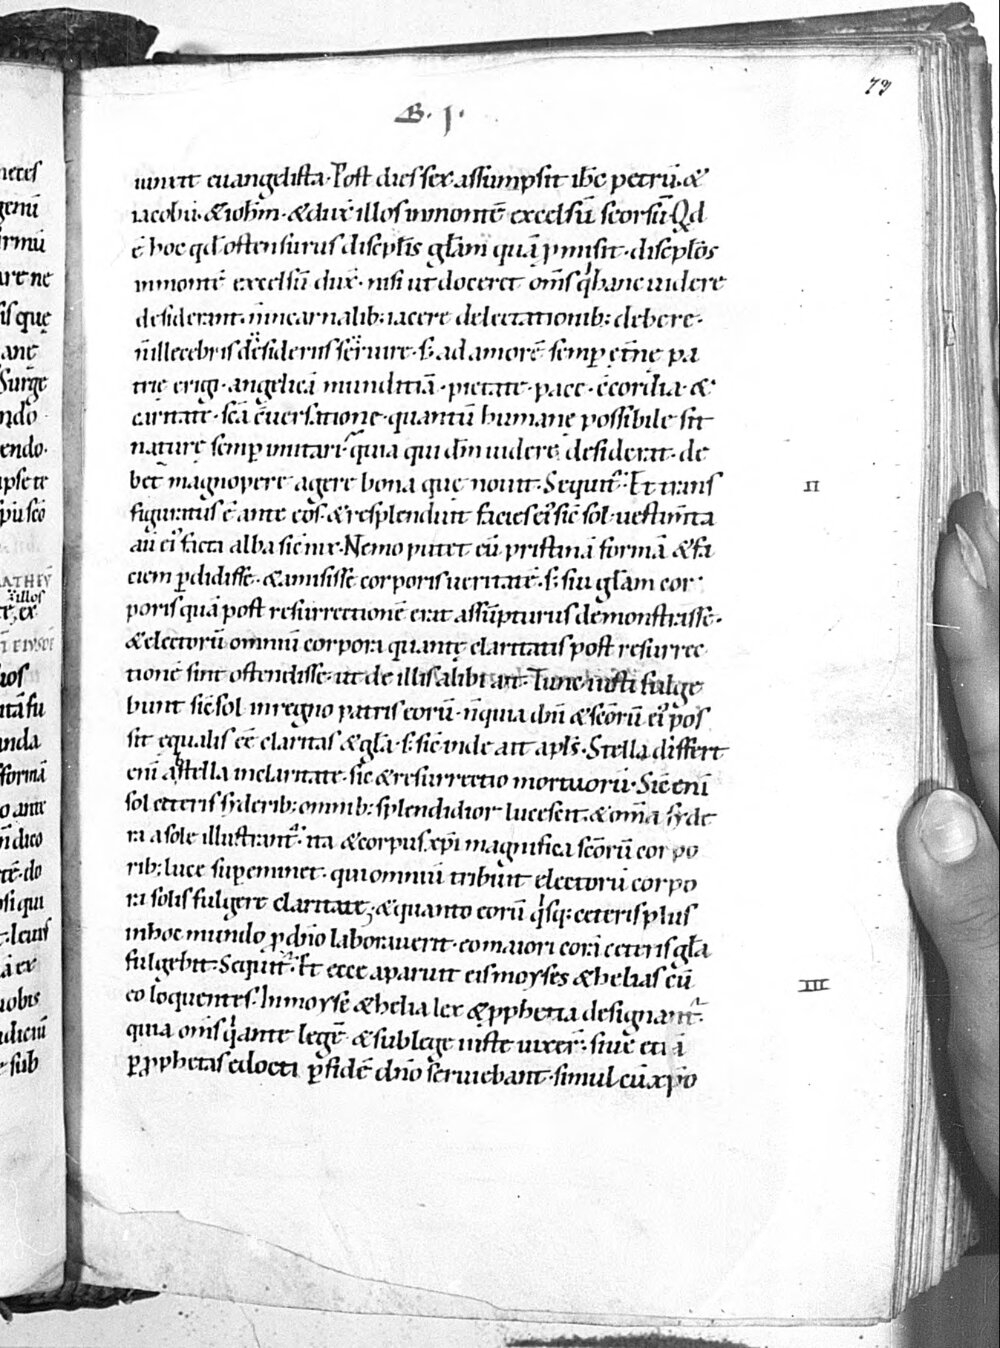 73
B. I.
iunxit euangelista. Post dies sex assumpsit ihc petrū. &
iacobū. & iohm̄. & dux̄ illos in montē excelsū seorsū. Qd
ē hoc qd ostensurus discipl̄is gl̄am quā p̄misit. discipl̄os
in montē excelsū dux̄. nisi ut doceret om̄s q̄ hanc uidere
desiderant. n̄ in carnalib; iacere delectationib; debere.
n̄ illecebris desideriis seruire. s; ad amorē semp ęt̄nę pa
trię erigi. angelicā munditiā. pietate. pace. c̄cordia. &
caritate. sc̄a c̄uersatione. quantū humanę possibile sit
naturę semp imitari. quia qui dm̄ uidere desiderat. de
bet magnopere agere bona quę nouit. Sequit̄. Et trans
figuratus ē ante eos. & resplenduit facies ei' sic̄ sol. uestim̄ta
aū ei' facta alba sic̄ nix. Nemo putet eū pristinā formā & fa
ciem p̄didisse. & amisisse corporis ueritatē. s; siu gl̄am cor
poris quā post resurrectionē erat assūpturus demonstrasse.
& electorū omniū corpora quantę claritatis post resurrec
tionē sint ostendisse. ut de illis alibi ait. Tunc iusti fulge
bunt sic̄ sol in regno patris eorū. n̄ quia dn̄i & sc̄orū ei' pos
sit equalis eē claritas & gl̄a. s; sic̄ inde ait apl̄s. Stella differt
eni a stella in claritate. sic & resurrectio mortuorū. Sic̄ eni
sol ceteris syderib; omnib; splendidior lucescit. & om̄a syde
ra a sole illustrant̄. ita & corpus xp̄i magnifica sc̄orū corpo
rib; luce supeminet. qui omniū tribuit electorū corpo
ra solis fulgere claritate, & quanto eorū q̄sq; ceteris plus
in hoc mundo p̄ dn̄o laborauerit. eo maiori corā ceteris gl̄a
fulgebit. Sequit̄. Et ecce aparuit eis moyses & helias cū
eo loquentes. In moysē & helia lex & p̄phetia designant̄.
quia om̄s q̄ ante legē & sub lege iuste uixer̄. siue etiā
p̄ p̄phetas edocti p̄ fidē dn̄o seruiebant. simul cū xp̄o
II
III